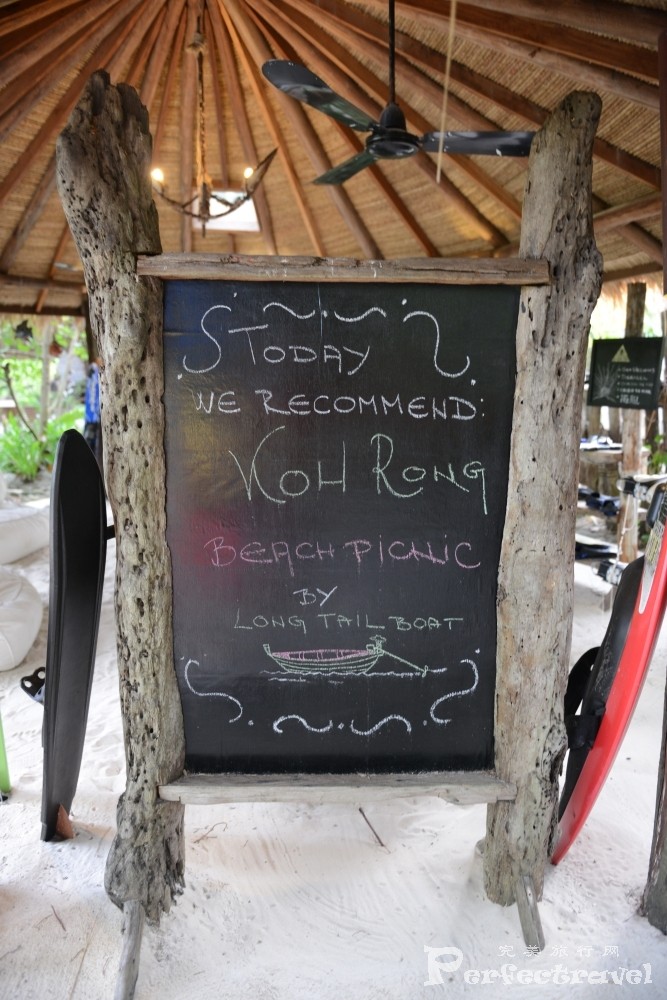 TODAY
WE RECOMMEND:
KOH RONG
BEACH PICNIC
BY
LONG TAIL BOAT
完美旅行网
Perfectravel